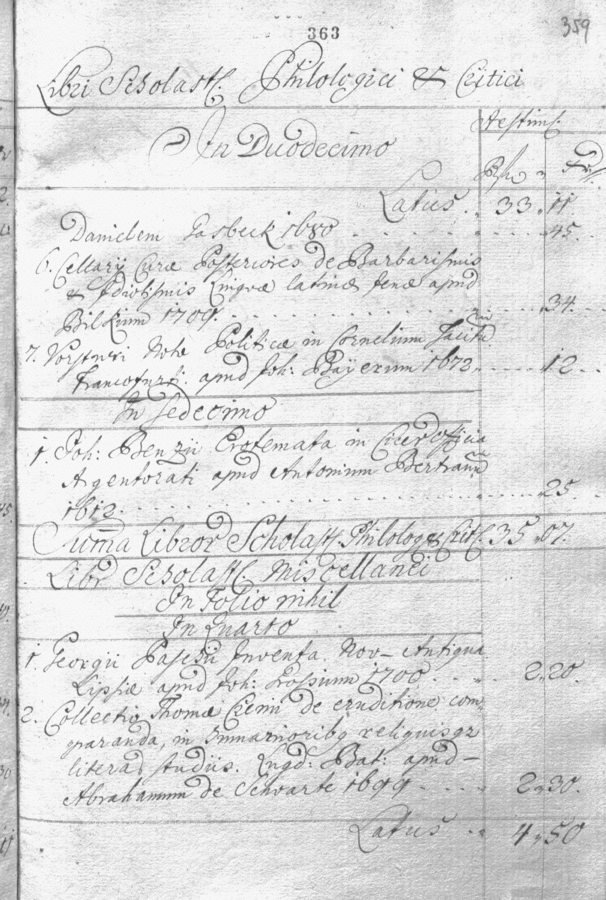 363
359
Libri Scholast: Philologici & Critici
Aestim:
In Duodecimo
Latus 33 11
Danielem Gasbeek 1680 45.
6. Cellarij Curæ Posteriores de Barbarismis
& Idiotismis Linguæ latinæ Jenæ apud
Bilkium 1700. 34.
7. Notæ Politicæ in Cornelium Tacitu
Francofurti. apud Joh: Bayerum 1672 12.
In Sedecimo
1. Joh: Benzii Erotemata in Cicer: officia
Argentorati apud Antonium Bertram
1612. 25.
Suma Libror Scholast. Philolog & Crit. 35 07.
Libri Scholast. Miscellanei
In Folio nihil
In Quarto
1. Georgii Paschii Inventa Nov-Antiqua
Lipsiæ apud Joh: Grossium 1700 2.20.
2. Collectio Thomæ Crenii de eruditione com-
paranda, in humanioriby reliquisqz
literar. studiis. Lugd: Bat: apud
Abrahamum de Schwarte 1699 2.30.
Latus 4.50